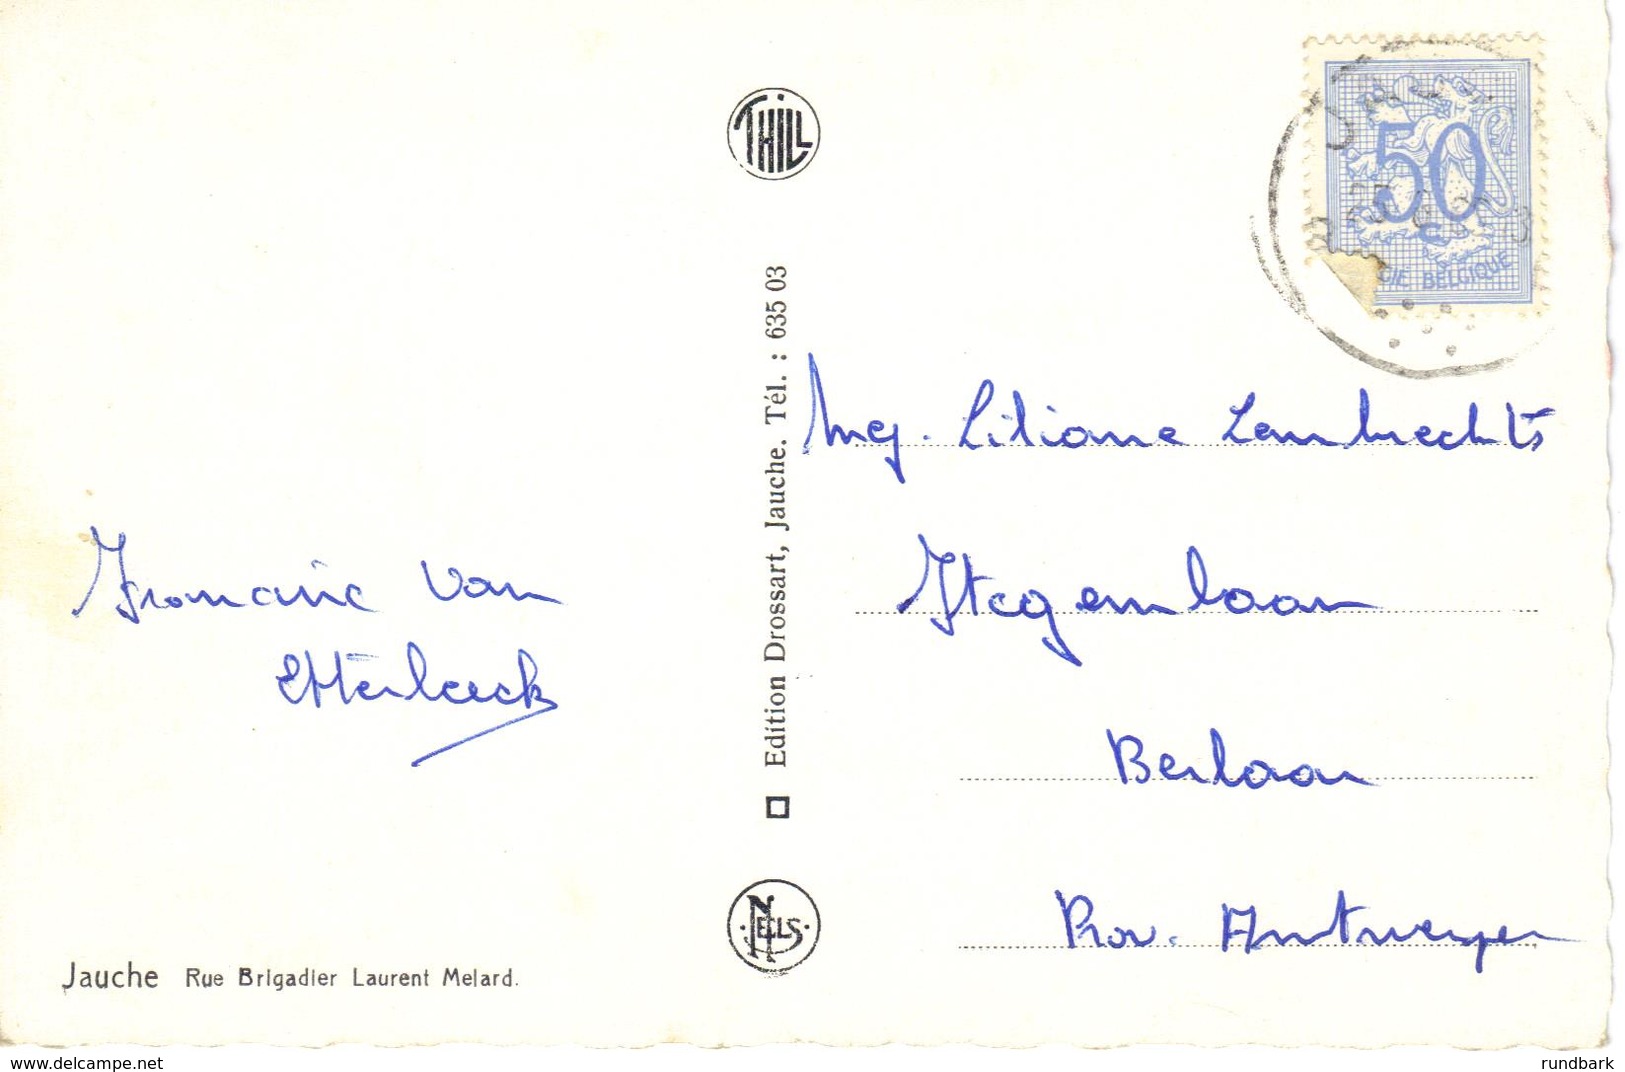 THILL
50
CIË BELGIQUE
Edition Drossart, Jauche. Tél. : 635 03
Mej. Liliane Lambrechts
Stegenlaan
Berlaar
Prov. Antwerpen
Francine Van
Etterbeeck
NELS
Jauche Rue Brigadier Laurent Melard.
www.delcampe.net
rundbark